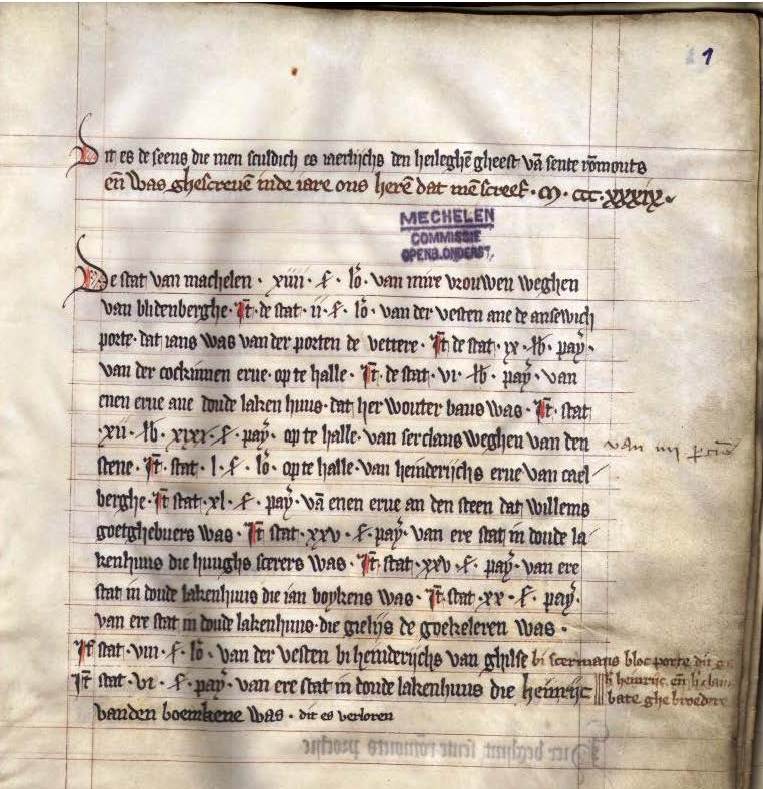 1
Dit es de seens die men sculdich es iaerlijchs den heileghē gheest vā sente rōmouts
eñ was ghescreuē inde iare ons herē dat mē screef · M · ccc · xxxix
MECHELEN
COMMISSIE
OPENB. ONDERST.
De stat van machelen · xiiii · ƒ · lo᷒ · van mire vrouwen weghen
van blidenberghe · It̄ · de stat · ii · ƒ · lo᷒ · van der vesten ane de ansewich
porte · dat ians was van der porten de vettere · It̄ de stat · ix · lb · pay᷒ ·
van der cockinnen erue · op te halle · It̄ · de stat · vi · lb · pay᷒ · van
enen erue ane doude laken huus · dat her wouter baus was · It̄ · stat
· xii · lb · xixi · ƒ · pay᷒ · op te halle · van ser claus weghen van den
stene · It̄ · stat · l · ƒ · lo᷒ · op te halle · van heinderijchs erue van cael
berghe · It̄ stat · xl · ƒ · pay᷒ · vā enen erue an den steen dat willems
goetghebuers was · It̄ stat · xxv · ƒ · pay᷒ · van ere stat in doude la
kenhuus die huughs scerers was · It̄ · stat · xxv · ƒ · pay᷒ · van ere
stat in doude lakenhuus die ian boykens was · It̄ · stat · xx · ƒ · pay᷒ ·
van ere stat in doude lakenhuus · die gielijs de goekeleren was ·
It̄ stat · viii · ƒ · lo᷒ · van der vesten bi heinderijchs van ghilse bi scermans bloc porte
It̄ stat · vi · ƒ · pay᷒ · van ere stat in doude lakenhuus die heinrijc
vanden boemkene was · dit es verloren
van iiii
heinrijc eñ
bate ghebroedere